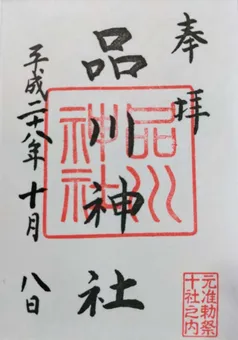 奉拝
品川神社
品川神社
平成二十八年十月八日
元准勅祭
十社之内